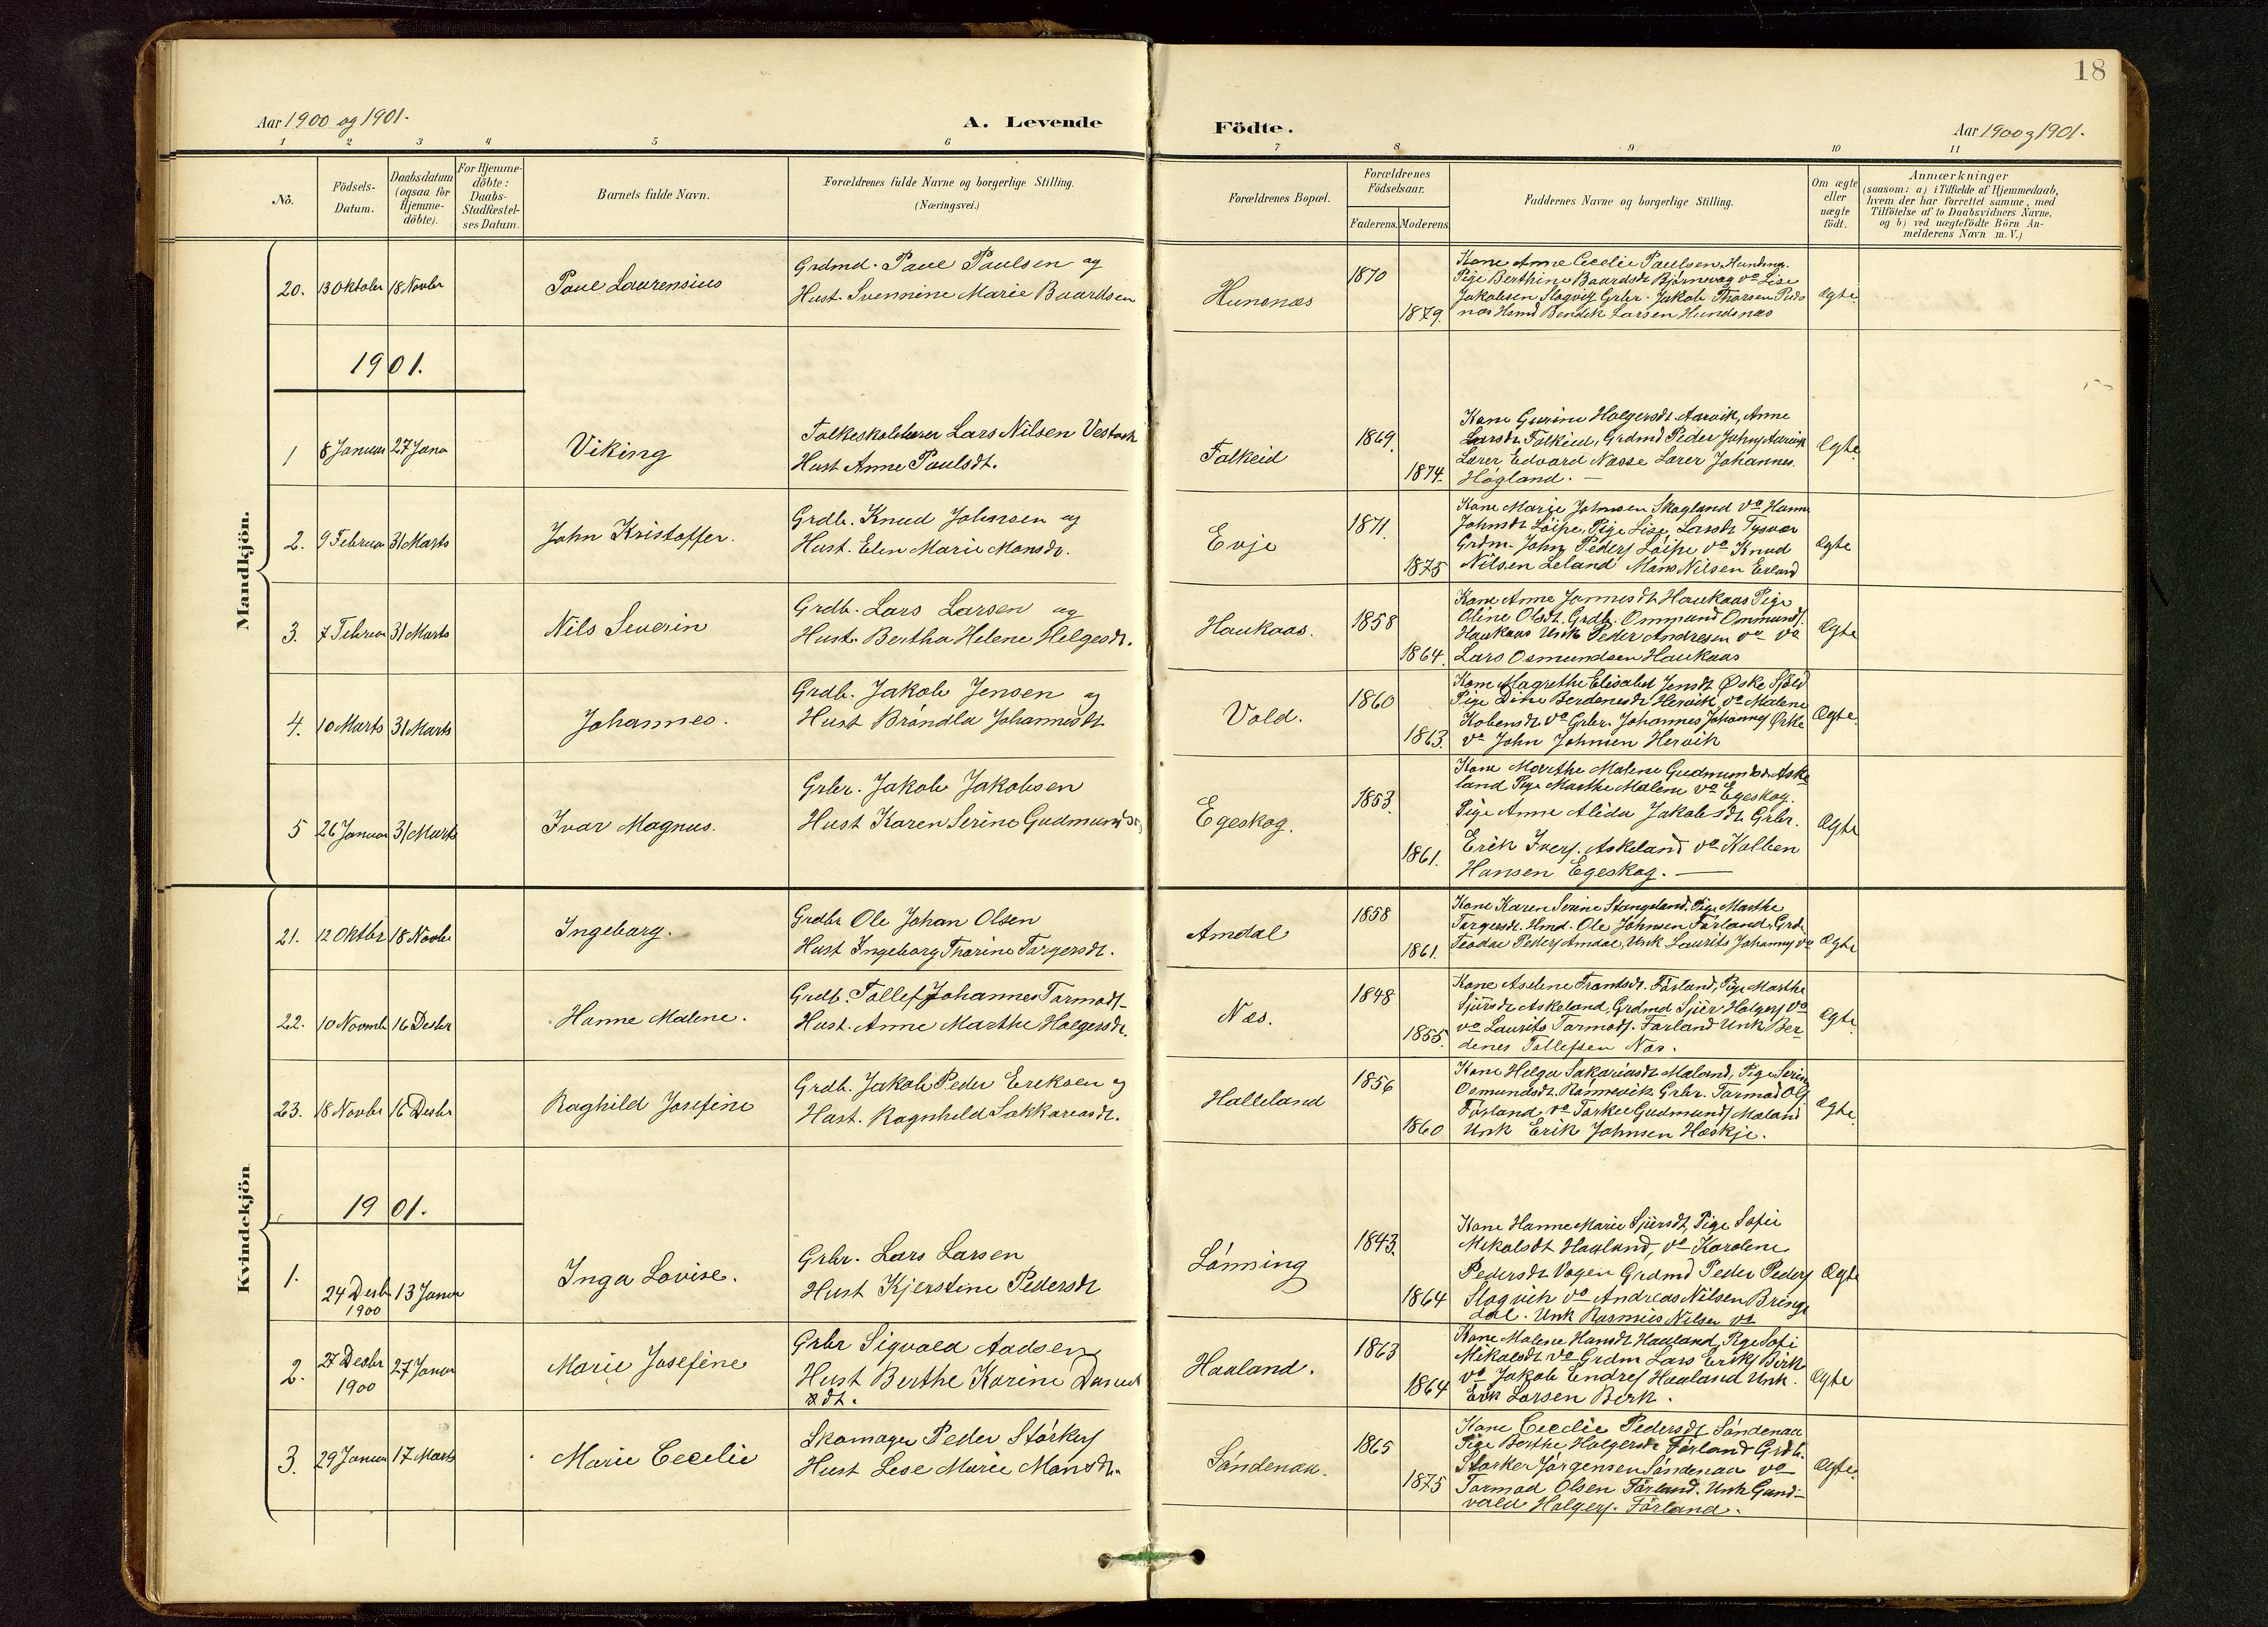 18
Aar 1900 og 1901.
A. Levende
Födte.
Aar 1900 og 1901.
1 2 3 4 5 6 7 8 9 10 11
No.
Födsels-
Datum.
Daabsdatum
(ogsaa for
Hjemme-
döbte).
For Hjemme-
döbte:
Daabs-
Stadfæstel-
ses Datum.
Barnets fulde Navn.
Forældrenes fulde Navne og borgerlige Stilling.
(Næringsvei.)
Forældrenes Bopæl.
Forældrenes
Födselsaar.
Faderens. Moderens
Faddernes Navne og borgerlige Stilling.
Om ægte
eller
uægte
födt.
Anmærkninger
(saasom: a) i Tilfælde af Hjemmedaab,
hvem der har forrettet samme, med
Tilföielse af to Daabsvidners Navne,
og b) ved uægtefödte Börn An-
melderens Navn m. V.)
Mandkjön.
20. 13 Oktober 18 Novbr
Paul Laurensius
Grdmd. Paul Paulsen og
Hust. Svennine Marie Baardsen
Hunsnæs
1870
1879.
Kone Anne Cecelie Paulsen Hundnæs.
Pige Berthine Baardsdt Bjørnevag do Lise
Jakobsen Slogvig Grbr. Jakob Thorsen
næs Hsmd Bendik Larsen Hundsnæs
Ægte
1901.
1 8 Januar 27 Janu
Viking
Folkeskolelærer Lars Nilsen
Hust Anne Paulsdt.
Falkeid
1869.
1874.
Kone Gurine Holgersdt. Aarvik, Anne
Larsdt. Falkeid, Grdmd Peder Johns Aarvik
Lærer Edvard Næsse Lærer Johannes.
Høgland.
Ægte
2. 9 Februar 31 Marts
John Kristoffer.
Grdb. Knud Johnsen og
Hust. Elen Marie Monsdt.
Evje
1871.
1875
Kone Marie Johnsen Skogland do Hanne
Johnsdt Løipe, Pige Lise Larsdt Tysvær
Grdm. John Peders Løipe do Knud
Nilsen Leland Mons Nilsen Erland
Ægte
3. 7 Februar 31 Marts
Nils Severin
Grdb. Lars Larsen og
Hust. Bertha Helene Helgesdt.
Haukaas.
1858
1864.
Kone Anne Jonnesdt Haukaas Pige
Oline Olsdt. Grdb. Ommund Ommunds.
Haukaas Unk Peder Andresen do do
Lars Osmundsen Haukaas
Ægte
4. 10 Marts 31 Marts
Johannes.
Grdb. Jakob Jensen og
Hust Brøndla Johannesdt
Vold.
1860
1863.
Kone Magrethe Elisabet Jensdt Øske
Pige Dine Berdenesdt Hervik, do Malene
do Grbr. Johannes Johannes Ørke
do John Johnsen Hervik
Ægte.
5 26 Januar 31 Marts
Ivar Magnus.
Grbr. Jakob Jakobsen
Hust Karen Serine Gudmundsdt
Egeskog.
1853.
1861.
Kone Marthe Malene Gudmundsdt Aske
land Pige Marthe Malene do Egeskog.
Pige Anne Alida Jakobsdt Grbr.
Erik Ivers. Askeland do Kolben
Hansen Egeskog.
Ægte
Kvindekjön
21. 12 Oktbr 18 Novbr
Ingeborg.
Grdbr Ole Johan Olsen
Hust Ingeborg Thorine Torgersdt.
Amdal
1858
1861.
Kone Karen Serine Stangeland. Pige Marthe
Torgersdt. Hmd. Ole Johnsen Førland, Grdb
Teodor Peders Amdal, Unk Laurits Johannes do
Ægte
22. 10 Novmb 16 Desbr
Hanne Malene.
Grdb. Tollef Johannes Tormods
Hust. Anne Marthe Holgersdt.
Næs.
1848
1855.
Kone Aselene Frantsdt. Førland, Pige Marthe
Sjursdt Askeland, Grdmd Sjur Holgers do
do Laurits Tormods. Førland Unk Ber-
denes Tollefsen Næs.
Ægte
23. 18 Novbr 16 Desbr
Raghild Josefine
Grdb. Jakob Peder Ereksen og
Hust. Ragnhild Sakkariasdt.
Halleland
1856
1860
Kone Helga Sakariasdt Mæland, Pige Serine
Osmundsdt. Rønnevik Grbr. Tormod Ols
Førland, do Torkel Gudmunds Mæland
Unk Erik Johnsen Hæskje.
Ægte.
1901.
1. 24 Desb 1900 13 Januar
Inga Lovise.
Grbr. Lars Larsen
Hust Kjerstine Pedersdt
Lønning
1843.
1864
Kone Hanne Marie Sjursdt, Pige Sofie
Mikalsdt Haaland, do Karolene
Pedersdt Vogen Grdmd Peder Peders
Slogvik do Andreas Nilsen Bringe
dal. Unk Rasmus Nilsen do
Ægte
2. 27 Desbr 1900 27 Januar
Marie Josefine
Grbr Sigvald Aadsen
Hust Berthe Karine
dt.
Haaland.
1863
1864
Kone Malene Hansdt Haaland, Pige Sofi
Mikalsdt do Grdm Lars Eriks Birk
do Jakob Endres Haaland Unk.
Erk Larsen Berk.
Ægte
3. 29 Januar 17 Marts
Marie Cecelie
Skomager Peder Størkers
Hust Lese Marie Monsdt.
Søndenaa.
1865
1875
Kone Cecelie Pedersdt Søndenaa
Pige Berthe Holgersdt Førland Grdb.
Størker Jørgensen Søndenaa do
Tormod Olsen Førland. Unk Gund-
vald Holgers. Førland.
Ægte.